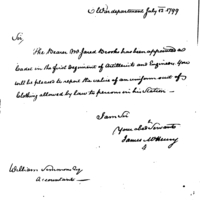 War department July 15 1799
Sir,
The Bearer Mr Jared Brooks has been appointed a
Cadet in the first Regiment of Artillerists and Engineers. You
will be pleased to report the value of an uniform suit of
Clothing allowed by Law to persons in his Station.
I am Sir
Your obed Servant
James McHenry
William Simmons Esq
Accountant